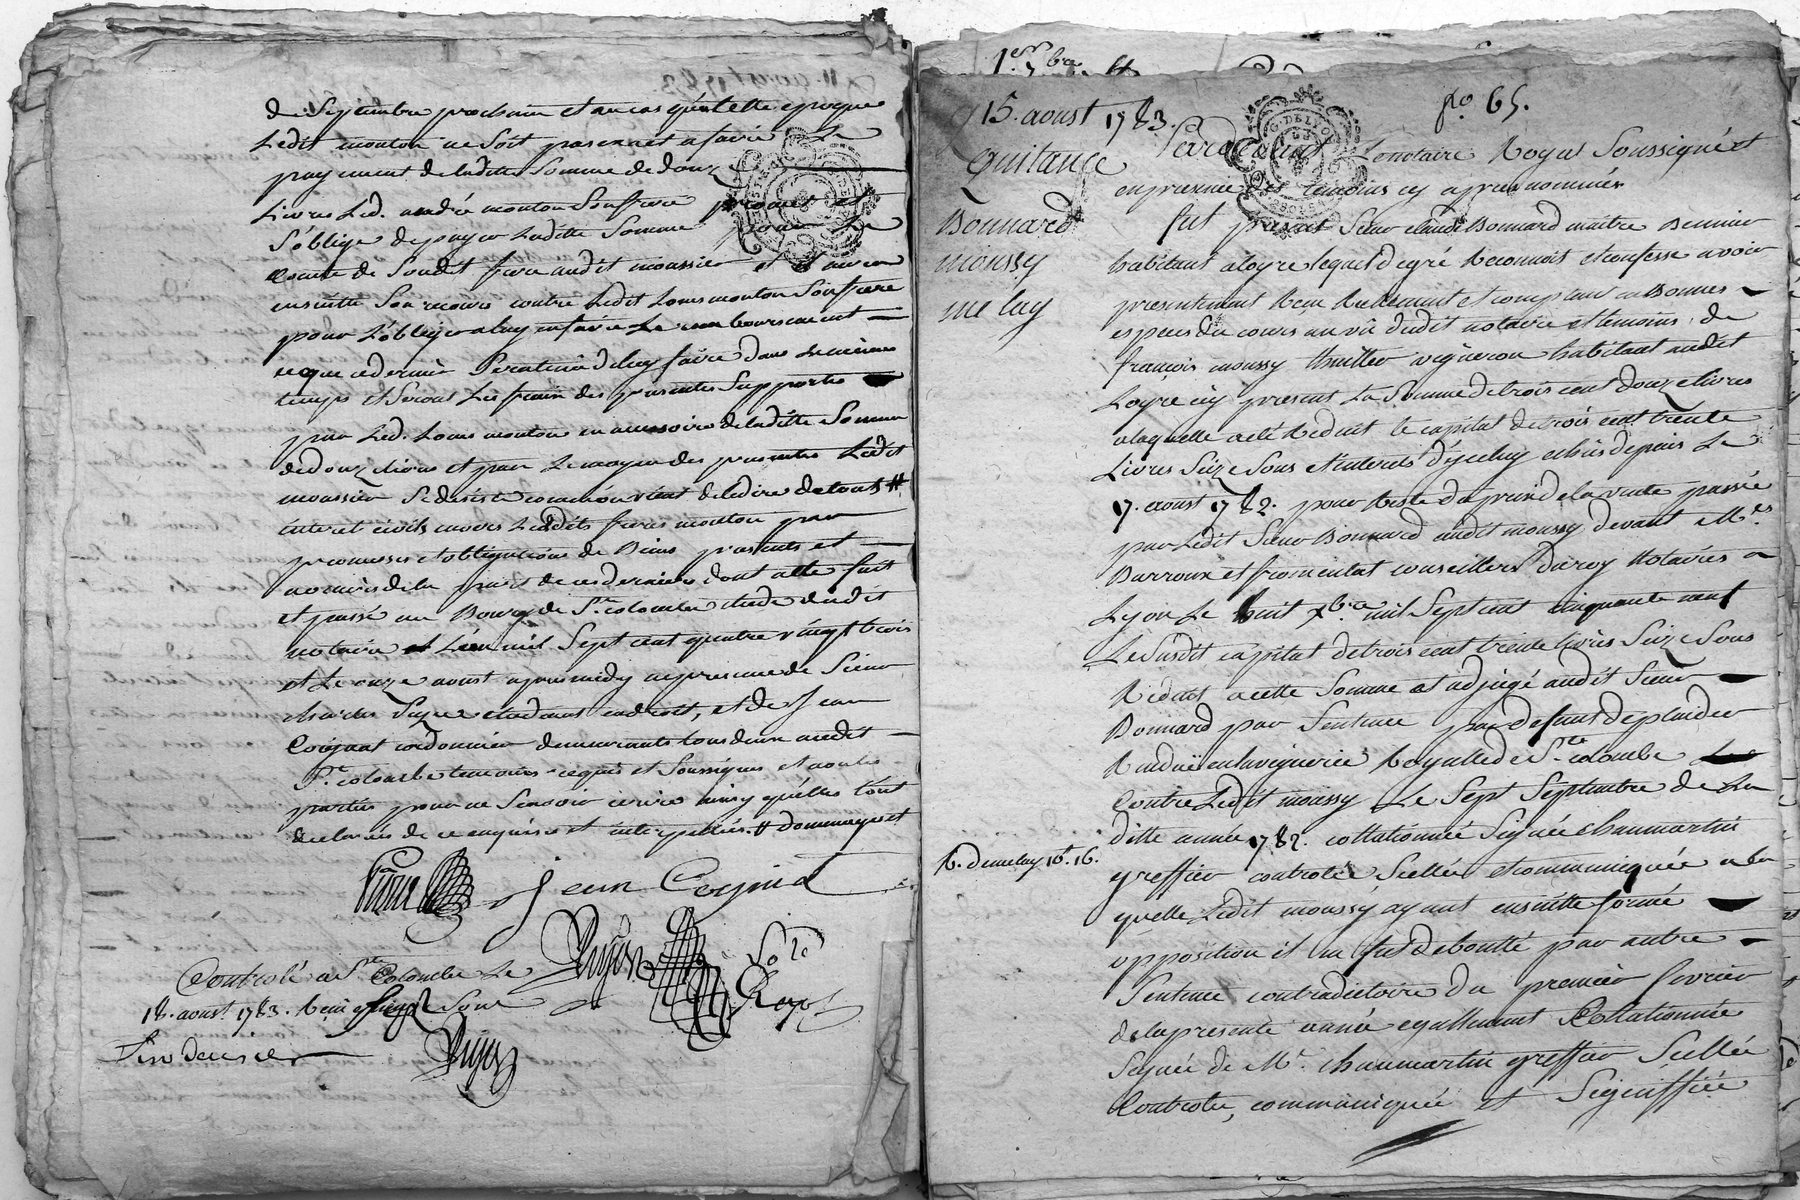 de Septembre prochain et au cas qu'a cette epoque
Ledit mouton ne Soit pas en etat de faire Le
payement de laditte Somme de douze
Livres Led. andré mouton Son frere promet et
S'oblige de payer Laditte Somme pour Le
compte de Sondit frere audit moussier et
ensuitte Son recours contre Ledit Louis mouton Son frere
pour L'obliger a luy en faire Le remboursement
ce que ce dernier Sera tenu de luy faire dans Le même
temps et Seront Les fraix des presentes Supportés
par Led. Louis mouton en accessoire de laditte Somme
de douze livres et par Le moyen des presentes Ledit
moussier Se desiste de tous #
interet civils envers Lesdits freres mouton par
promesses et obligations de Biens presents et
avenirs de la part de ces derniers dont acte fait
et passé au Bourg de Ste. colombe etude dudit
notaire L'an mil Sept cent quatre vingt trois
et Le onze aoust apres midy en presence de Sieur
etudiant en droit, et de Jean
Coignat cordonnier demeurants tous deux audit
Ste. colombe temoins requis et Soussignés et non les
parties pour ne Scavoir ecrire ainsy qu'elles l'ont
declarés de ce enquises et interpellées. # dommages et
Jean Coignat
Dujon
No.re
Royal
Controlé a Ste. Colombe Le
18. aoust 1783. Reçu quinze Sous
Dujon
1er. 7bre
15. aoust 1783.
fo. 65.
Quitance
Bonnard
moussy
me luy
G. DE LYON
Pardevant Le notaire Royal Soussigné et
en presence des temoins cy apres nommés
fut present Sieur claude Bonnard maitre
habitant a loyre lequel de gré Reconnoit et confesse avoir
presentement Reçu Reellement et comptant en Bonnes
especes du cours au vû dudit notaire et temoins, de
françois moussy vigneron habitant audit
Loyre icy present La Somme de trois cent douze livres
a laquelle a eté Reduit le capital de trois cent trente
Livres Seize Sous et interets d'yceluy echus depuis Le
17. aoust 1782. pour Reste du prix de la vente passée
par Ledit Sieur Bonnard audit moussy devant Mes.
Barroux et fromental conseillers du roy Notaires a
Lyon Le huit xbre. mil Sept cent cinquante neuf
Le Susdit capital de trois cent trente livres Seize Sous
Reduit a cette Somme et adjugé audit Sieur
Bonnard par Sentence par defaut de plaider
Rendue en la viguerie Royalle de Ste. colombe
Contre Ledit moussy Le Sept Septembre de La
ditte année 1782. collationnée Signée Chaumartin
greffier controlée Scellée et communiquée a la
quelle Ledit moussy ayant ensuitte formé
opposition il en fut deboutté par autre
Sentence contradictoire du premier fevrier
de la presente année egallement Collationnée
Signée de Me. Chaumartin greffier Scellée
Controlée, communiquée et Signiffiée